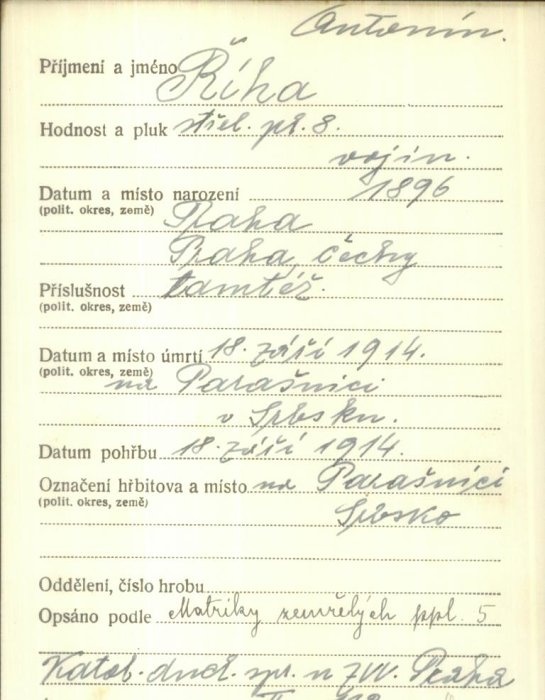 Antonín.
Příjmení a jméno Říha
Hodnost a pluk střel. pl. 8.
vojín.
Datum a místo narození 1896
(polit. okres, země) Praha
Praha, Čechy
Příslušnost tamtéž.
(polit. okres, země)
Datum a místo úmrtí 18. září 1914.
(polit. okres, země) na Parašnici
v Srbsku.
Datum pohřbu 18. září 1914.
Označení hřbitova a místo na Parašnici
(polit. okres, země)
Srbsko
Oddělení, číslo hrobu
Opsáno podle Matriky zemřelých ppl. 5
Katol. duch. spr. u ZVV. Praha